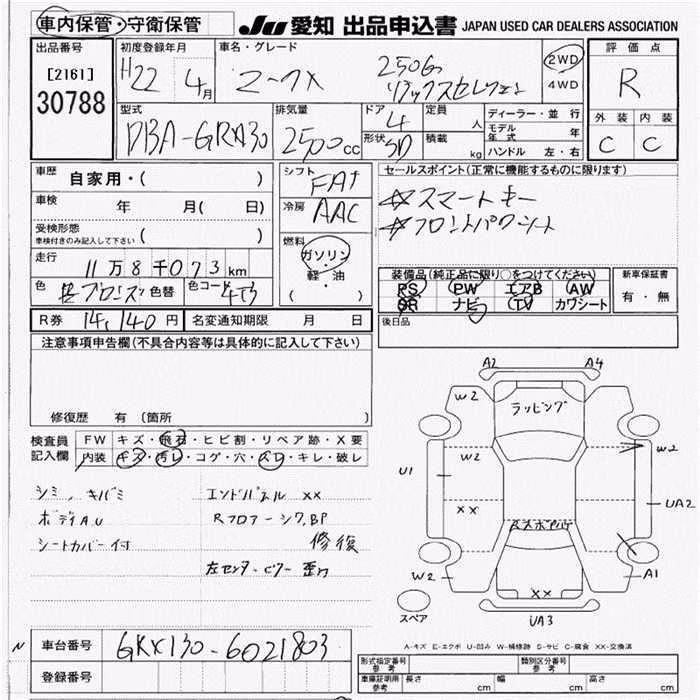 車内保管・守衛保管 JU 愛知 出品申込書 JAPAN USED CAR DEALERS ASSOCIATION
出品番号 初度登録年月 車名・グレード 評価点
[2161] H22 4月 マークX 250G 2WD R
30788 リラックスセレクション 4WD
型式 排気量 ドア 4 定員 人 ディーラー・並行 外装 内装
DBA-GRX130 2500cc 形状 SD 積載 kg モデル年式 年 C C
ハンドル 左・右
車歴 自家用・( ) シフト FAT セールスポイント(正常に機能するものに限ります)
車検 年 月( 日) 冷房 AAC ☆スマートキー
受検形態 ( ) ☆フロントパワーシート
車検付きのみ記入して下さい
燃料 ガソリン・軽・油 ( )
走行 11万8千073km 装備品(純正品に限り○をつけてください) 新車保証書
色 色替 色コード PS PW エアB AW 有・無
SR ナビ TV カワシート
R券 14,140円 名変通知期限 月 日 後日品
注意事項申告欄(不具合内容等は具体的に記入して下さい)
修復歴 有 (箇所 )
検査員 FW キズ・飛石・ヒビ割・リペア跡・X要
記入欄 内装 キズ・汚レ・コゲ・穴・スレ・キレ・破レ
シミ、キバミ エンドパネル XX
ボディAU Rフロアーシワ,BP
シートカバー付 修復
左センターピラー歪み
A2 A4
W2 ラッピング
W2 W2
U1 XX UA2
W2 A1
XX
スペア UA3
A-キズ E-エクボ U-凹み W-補修跡 S-サビ C-腐食 XX-交換済
N 車台番号 GRX130-6021803
登録番号
形式指定番号 参考 類別区分番号 参考
車庫証明用 参考 長さ cm 幅 cm 高さ cm